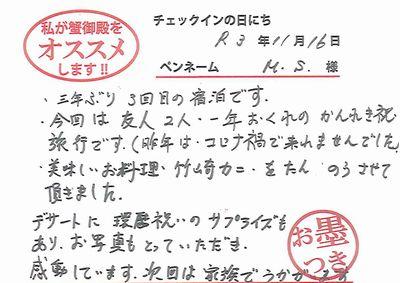 私が蟹御殿を
オススメ
します!!
チェックインの日にち
R3年11月16日
ペンネーム M.S. 様
・三年ぶり3回目の宿泊です。
・今回は友人2人・一年おくれのかんれき祝
旅行です。(昨年は・コロナ禍で来れませんでした)
・美味しいお料理・竹崎カニ・をたんのうさせて
頂きました。
デザートに還暦祝いのサプライズも
あり、お写真もとっていただき.
感動しています。次回は家族でうかがいます
お墨つき